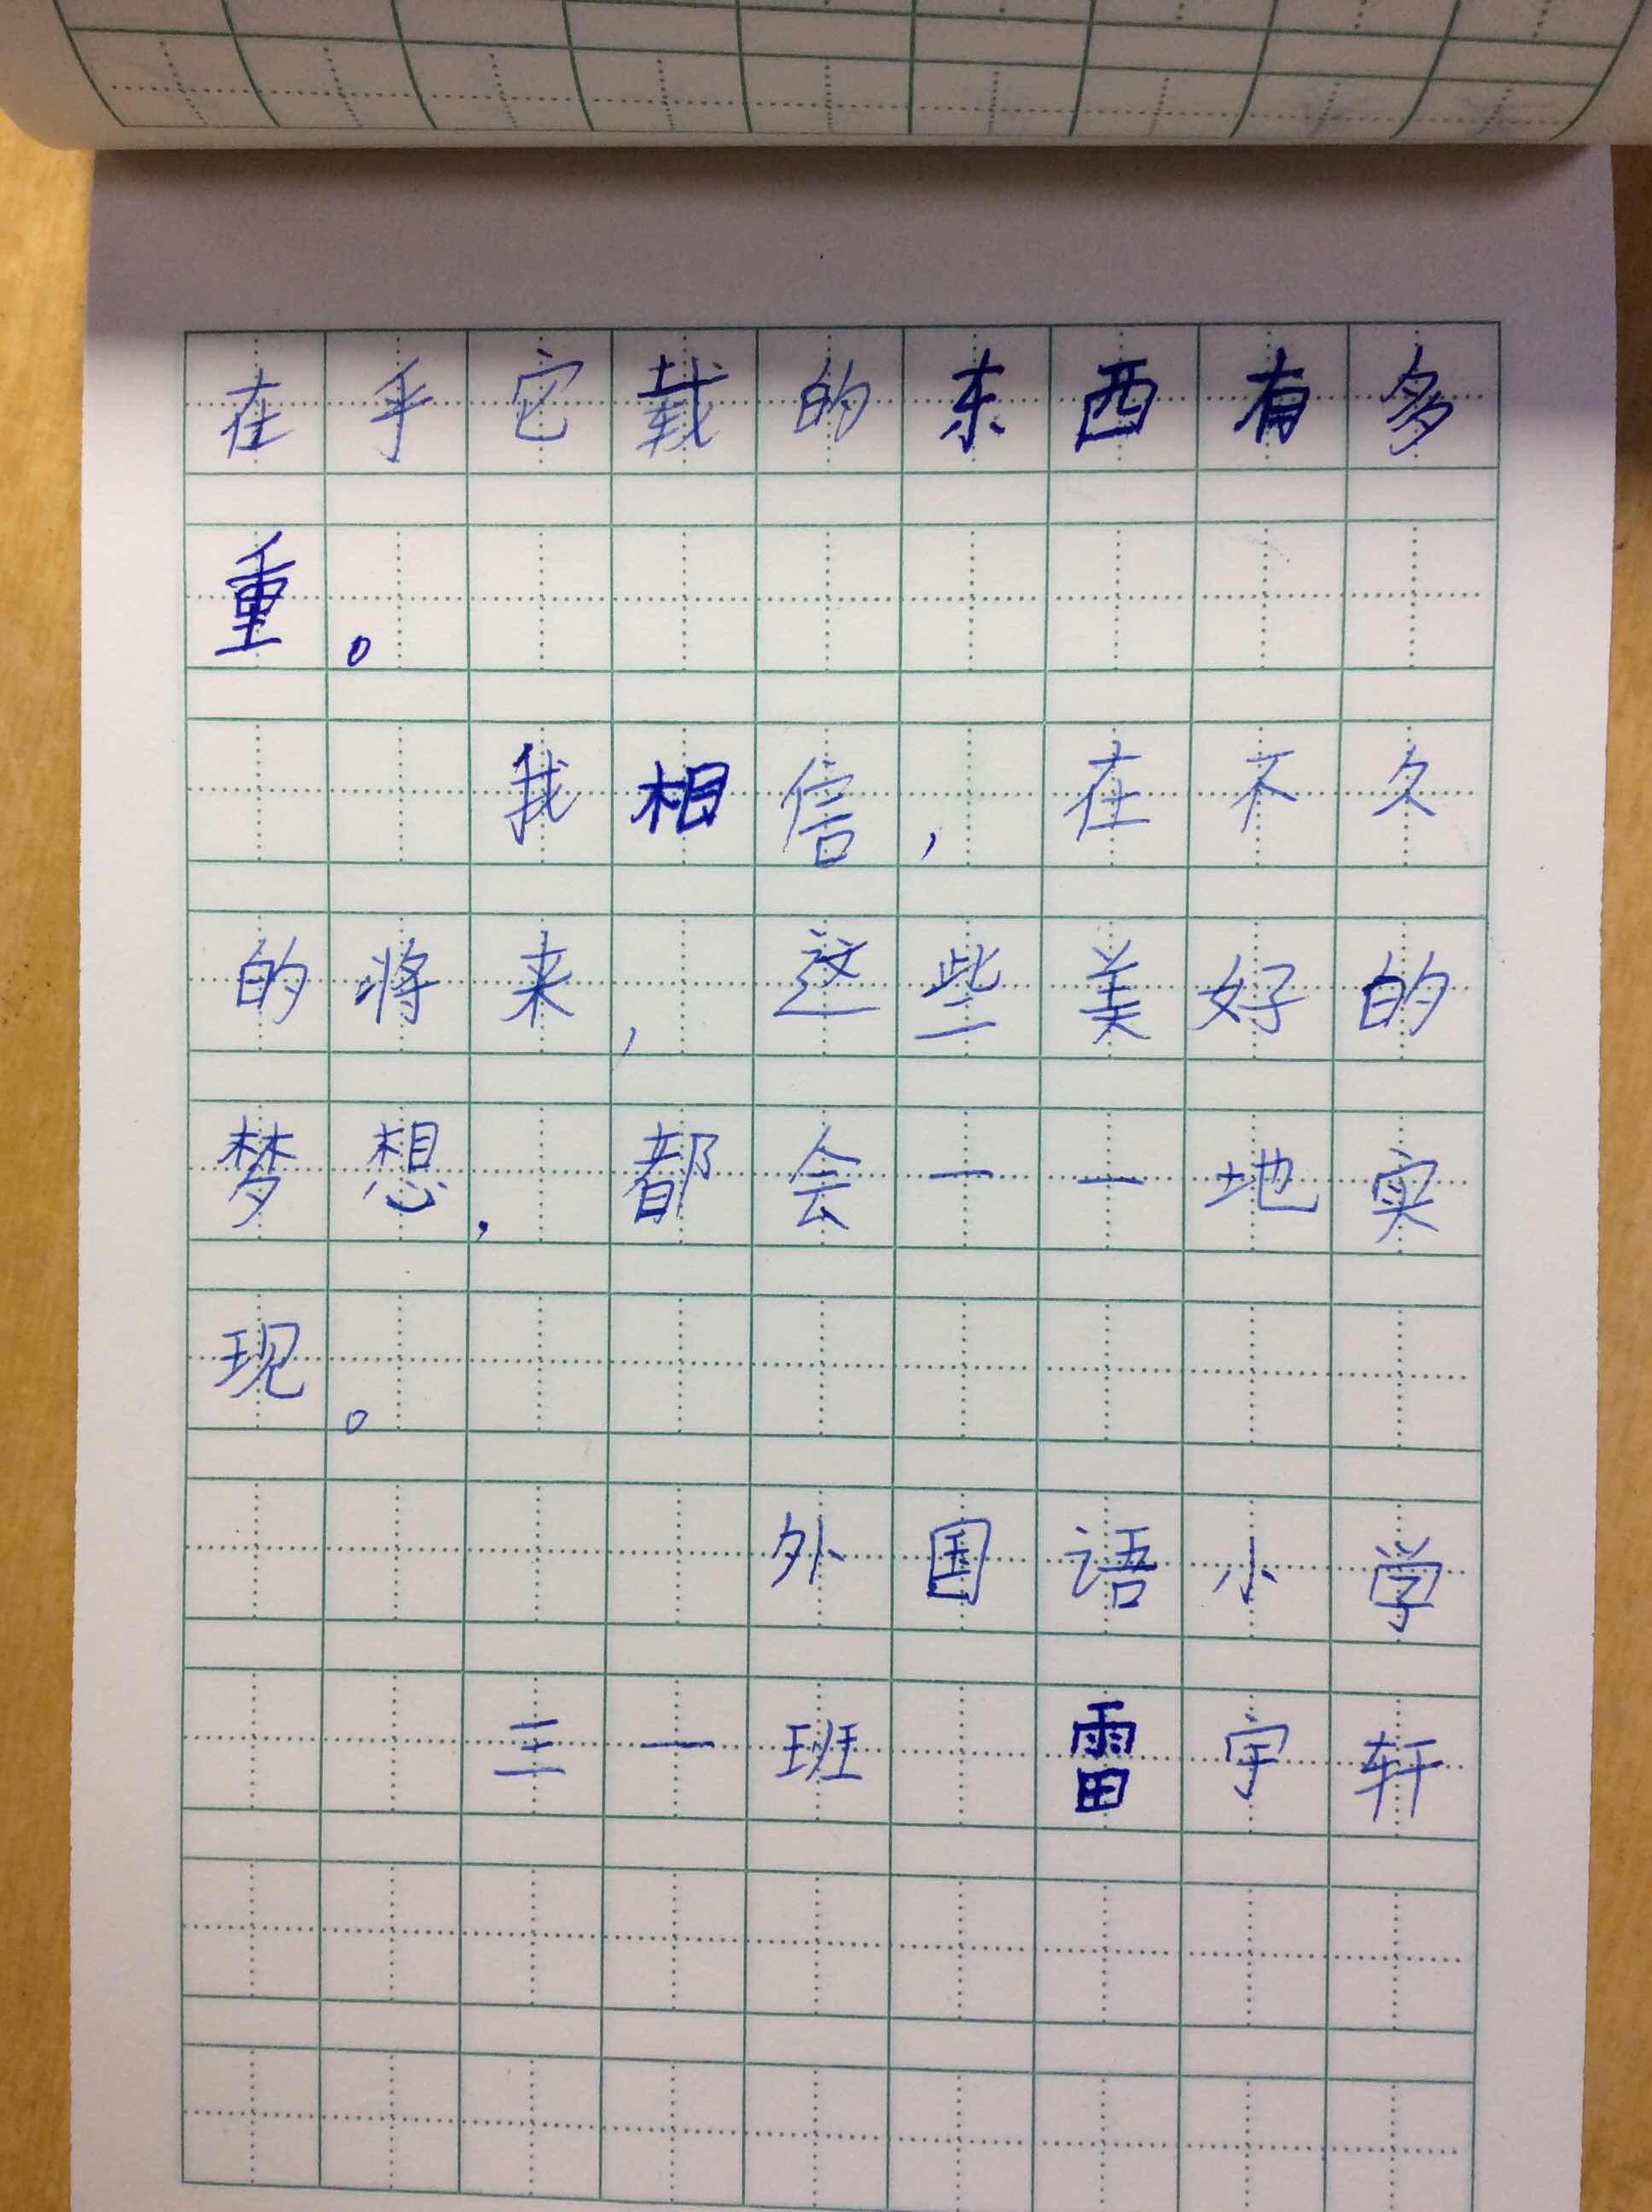 在乎它载的东西有多
重。
我相信,在不久
的将来,这些美好的
梦想,都会一一地实
现。
外国语小学
三一班 雷宇轩